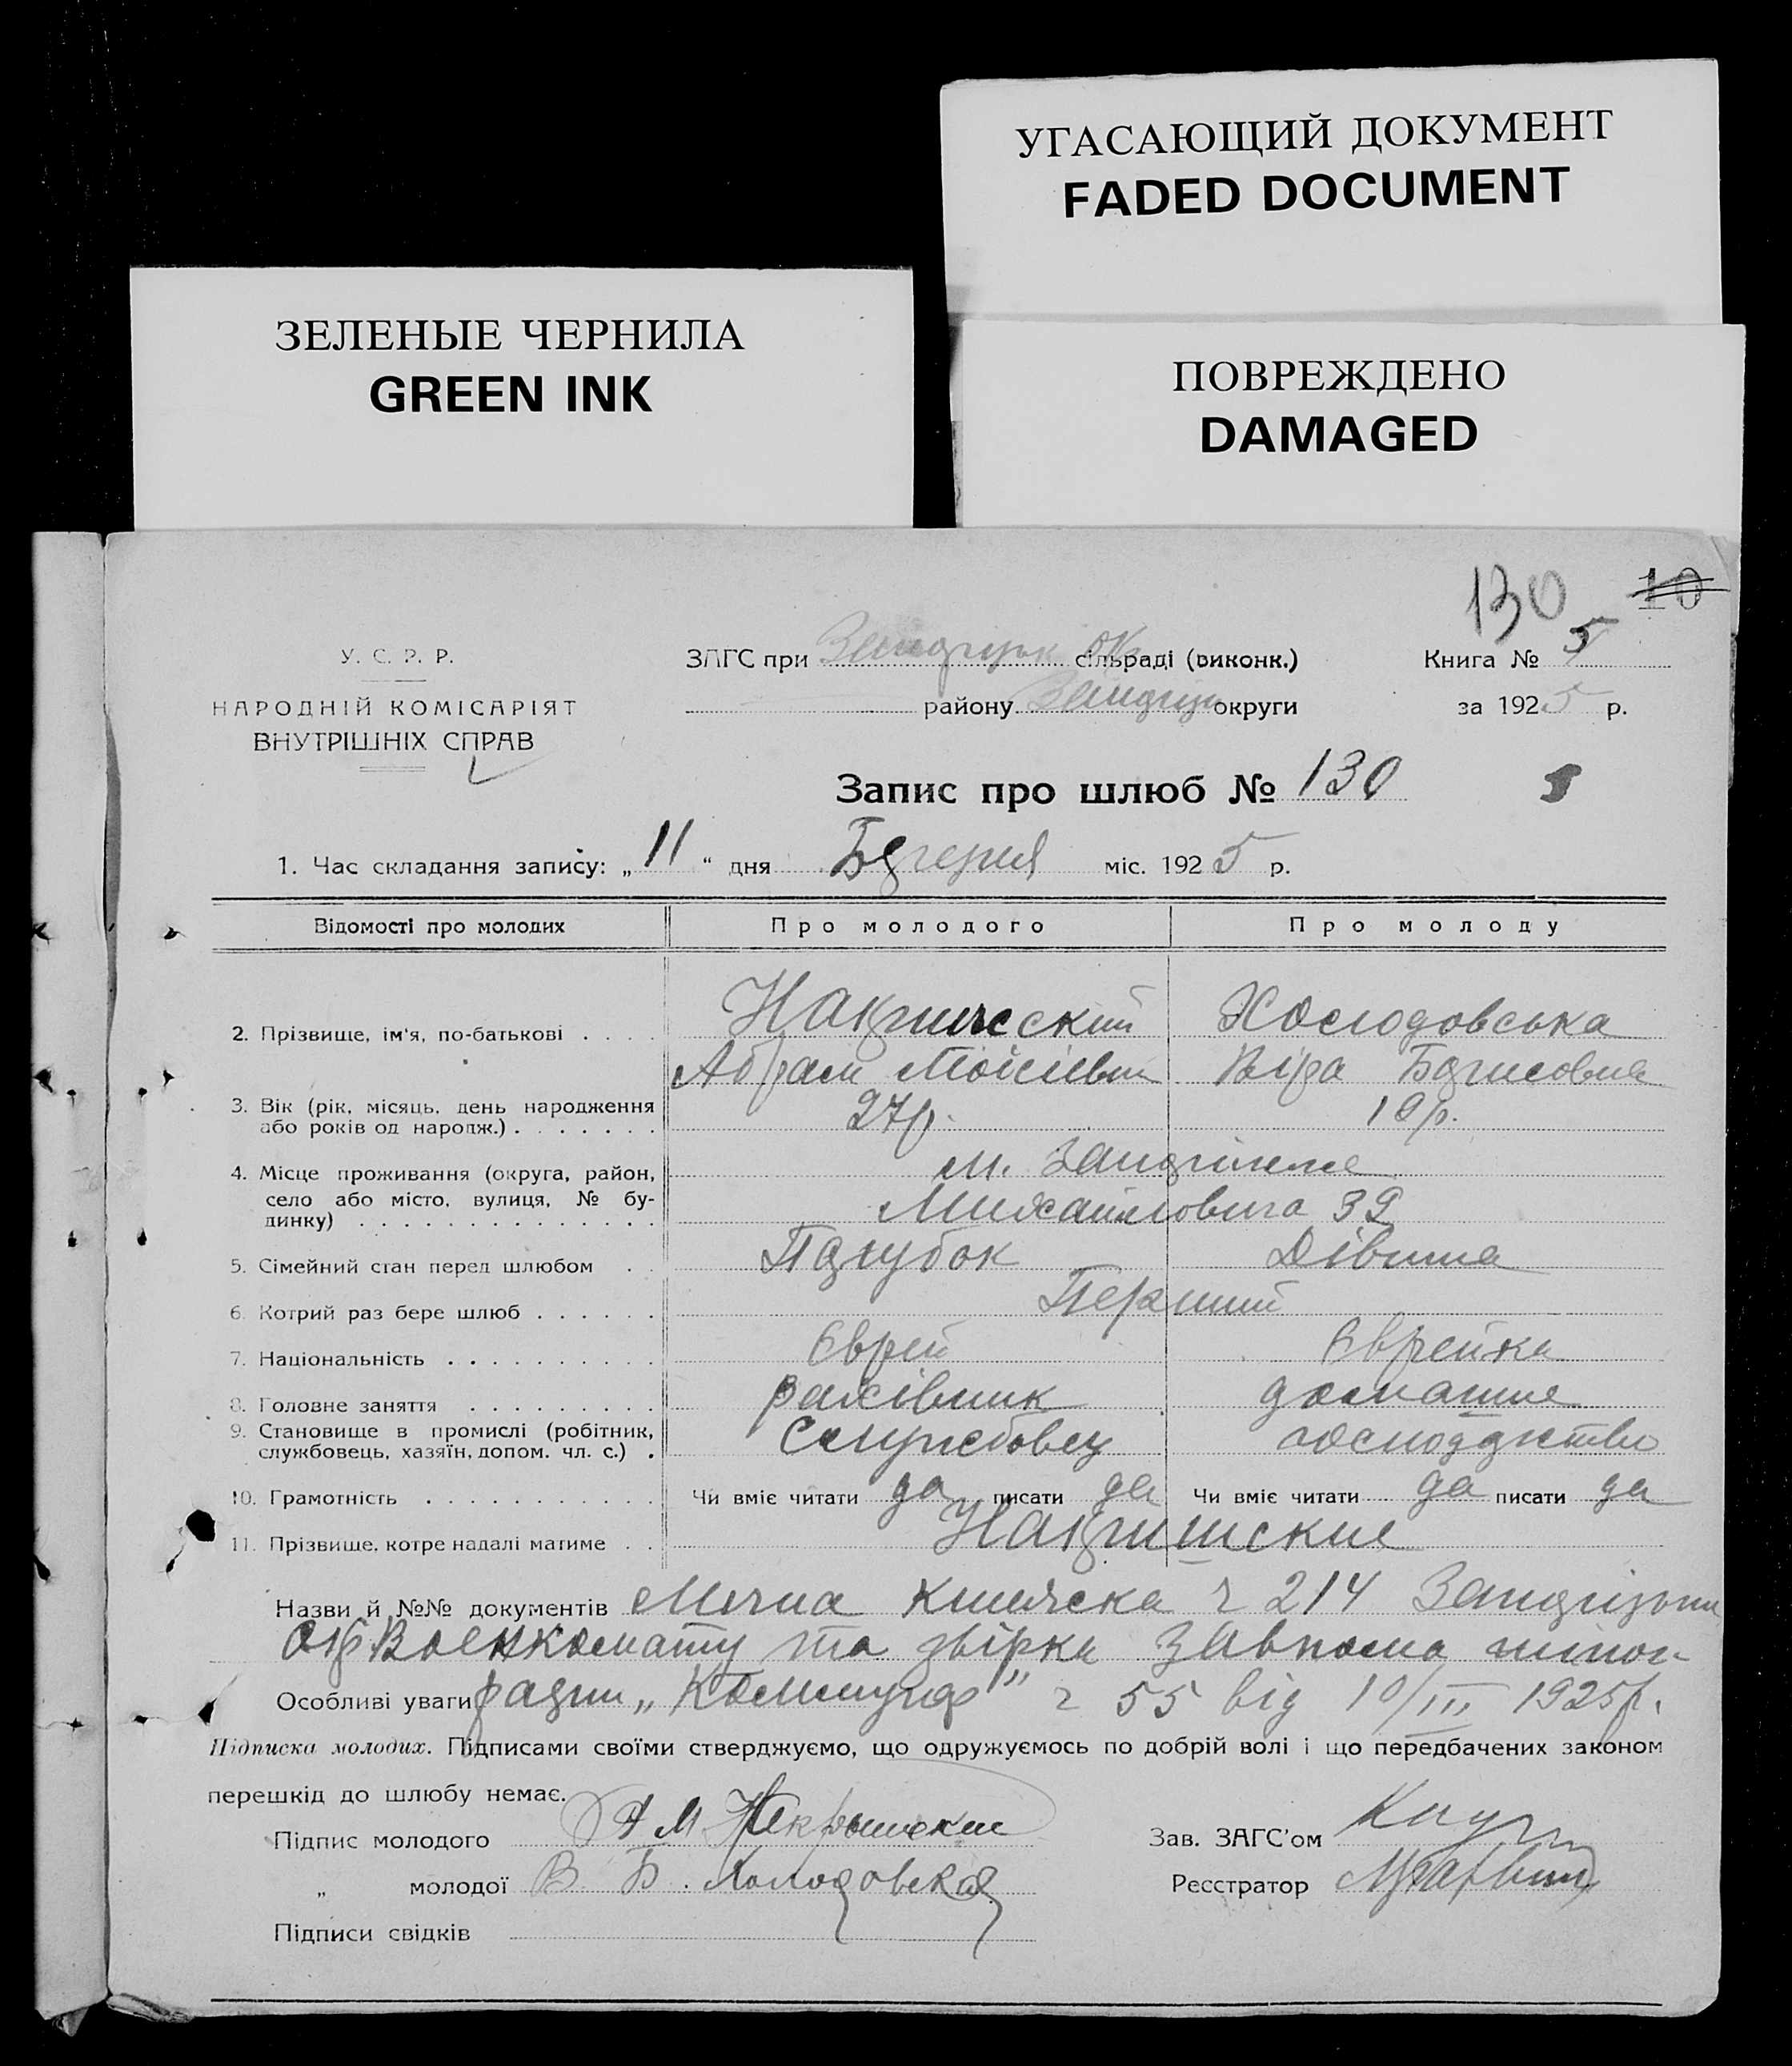 УГАСАЮЩИЙ ДОКУМЕНТ
FADED DOCUMENT
ЗЕЛЕНЫЕ ЧЕРНИЛА
GREEN INK
ПОВРЕЖДЕНО
DAMAGED
130 10
У. С. Р. Р.
ЗАГС при сільраді (виконк.) Книга № 5
НАРОДНІЙ КОМІСАРІЯТ
району округи за 1925 р.
ВНУТРІШНІХ СПРАВ
Запис про шлюб № 130
1. Час складання запису: „11“ дня міс. 1925 р.
Відомості про молодих Про молодого Про молоду
2. Прізвище, ім'я, по-батькові Холодовська
Абрам Мойсієвич Віра Борисовна
3. Вік (рік, місяць, день народження або років од народж.) 27 р. 19 р.
4. Місце проживання (округа, район, село або місто, вулиця, № будинку) м.
Михайловича 39
5. Сімейний стан перед шлюбом Парубок Дівиця
6. Котрий раз бере шлюб Перший
7. Національність Єврей Єврейка
8. Головне заняття рахівник домашнє
9. Становище в промислі (робітник, службовець, хазяїн, допом. чл. с.) Службовець господарство
10. Грамотність Чи вміє читати да писати да Чи вміє читати да писати да
11. Прізвище, котре надалі матиме
Назви й №№ документів книжка ч 214
Военкомату та звірка
Особливі уваги ч 55 від 10/III 1925 р.
Підписка молодих. Підписами своїми стверджуємо, що одружуємось по добрій волі і що передбачених законом
перешкід до шлюбу немає.
Підпис молодого А М Зав. ЗАГС'ом
„ молодої В. Б. Холодовская Реєстратор
Підписи свідків